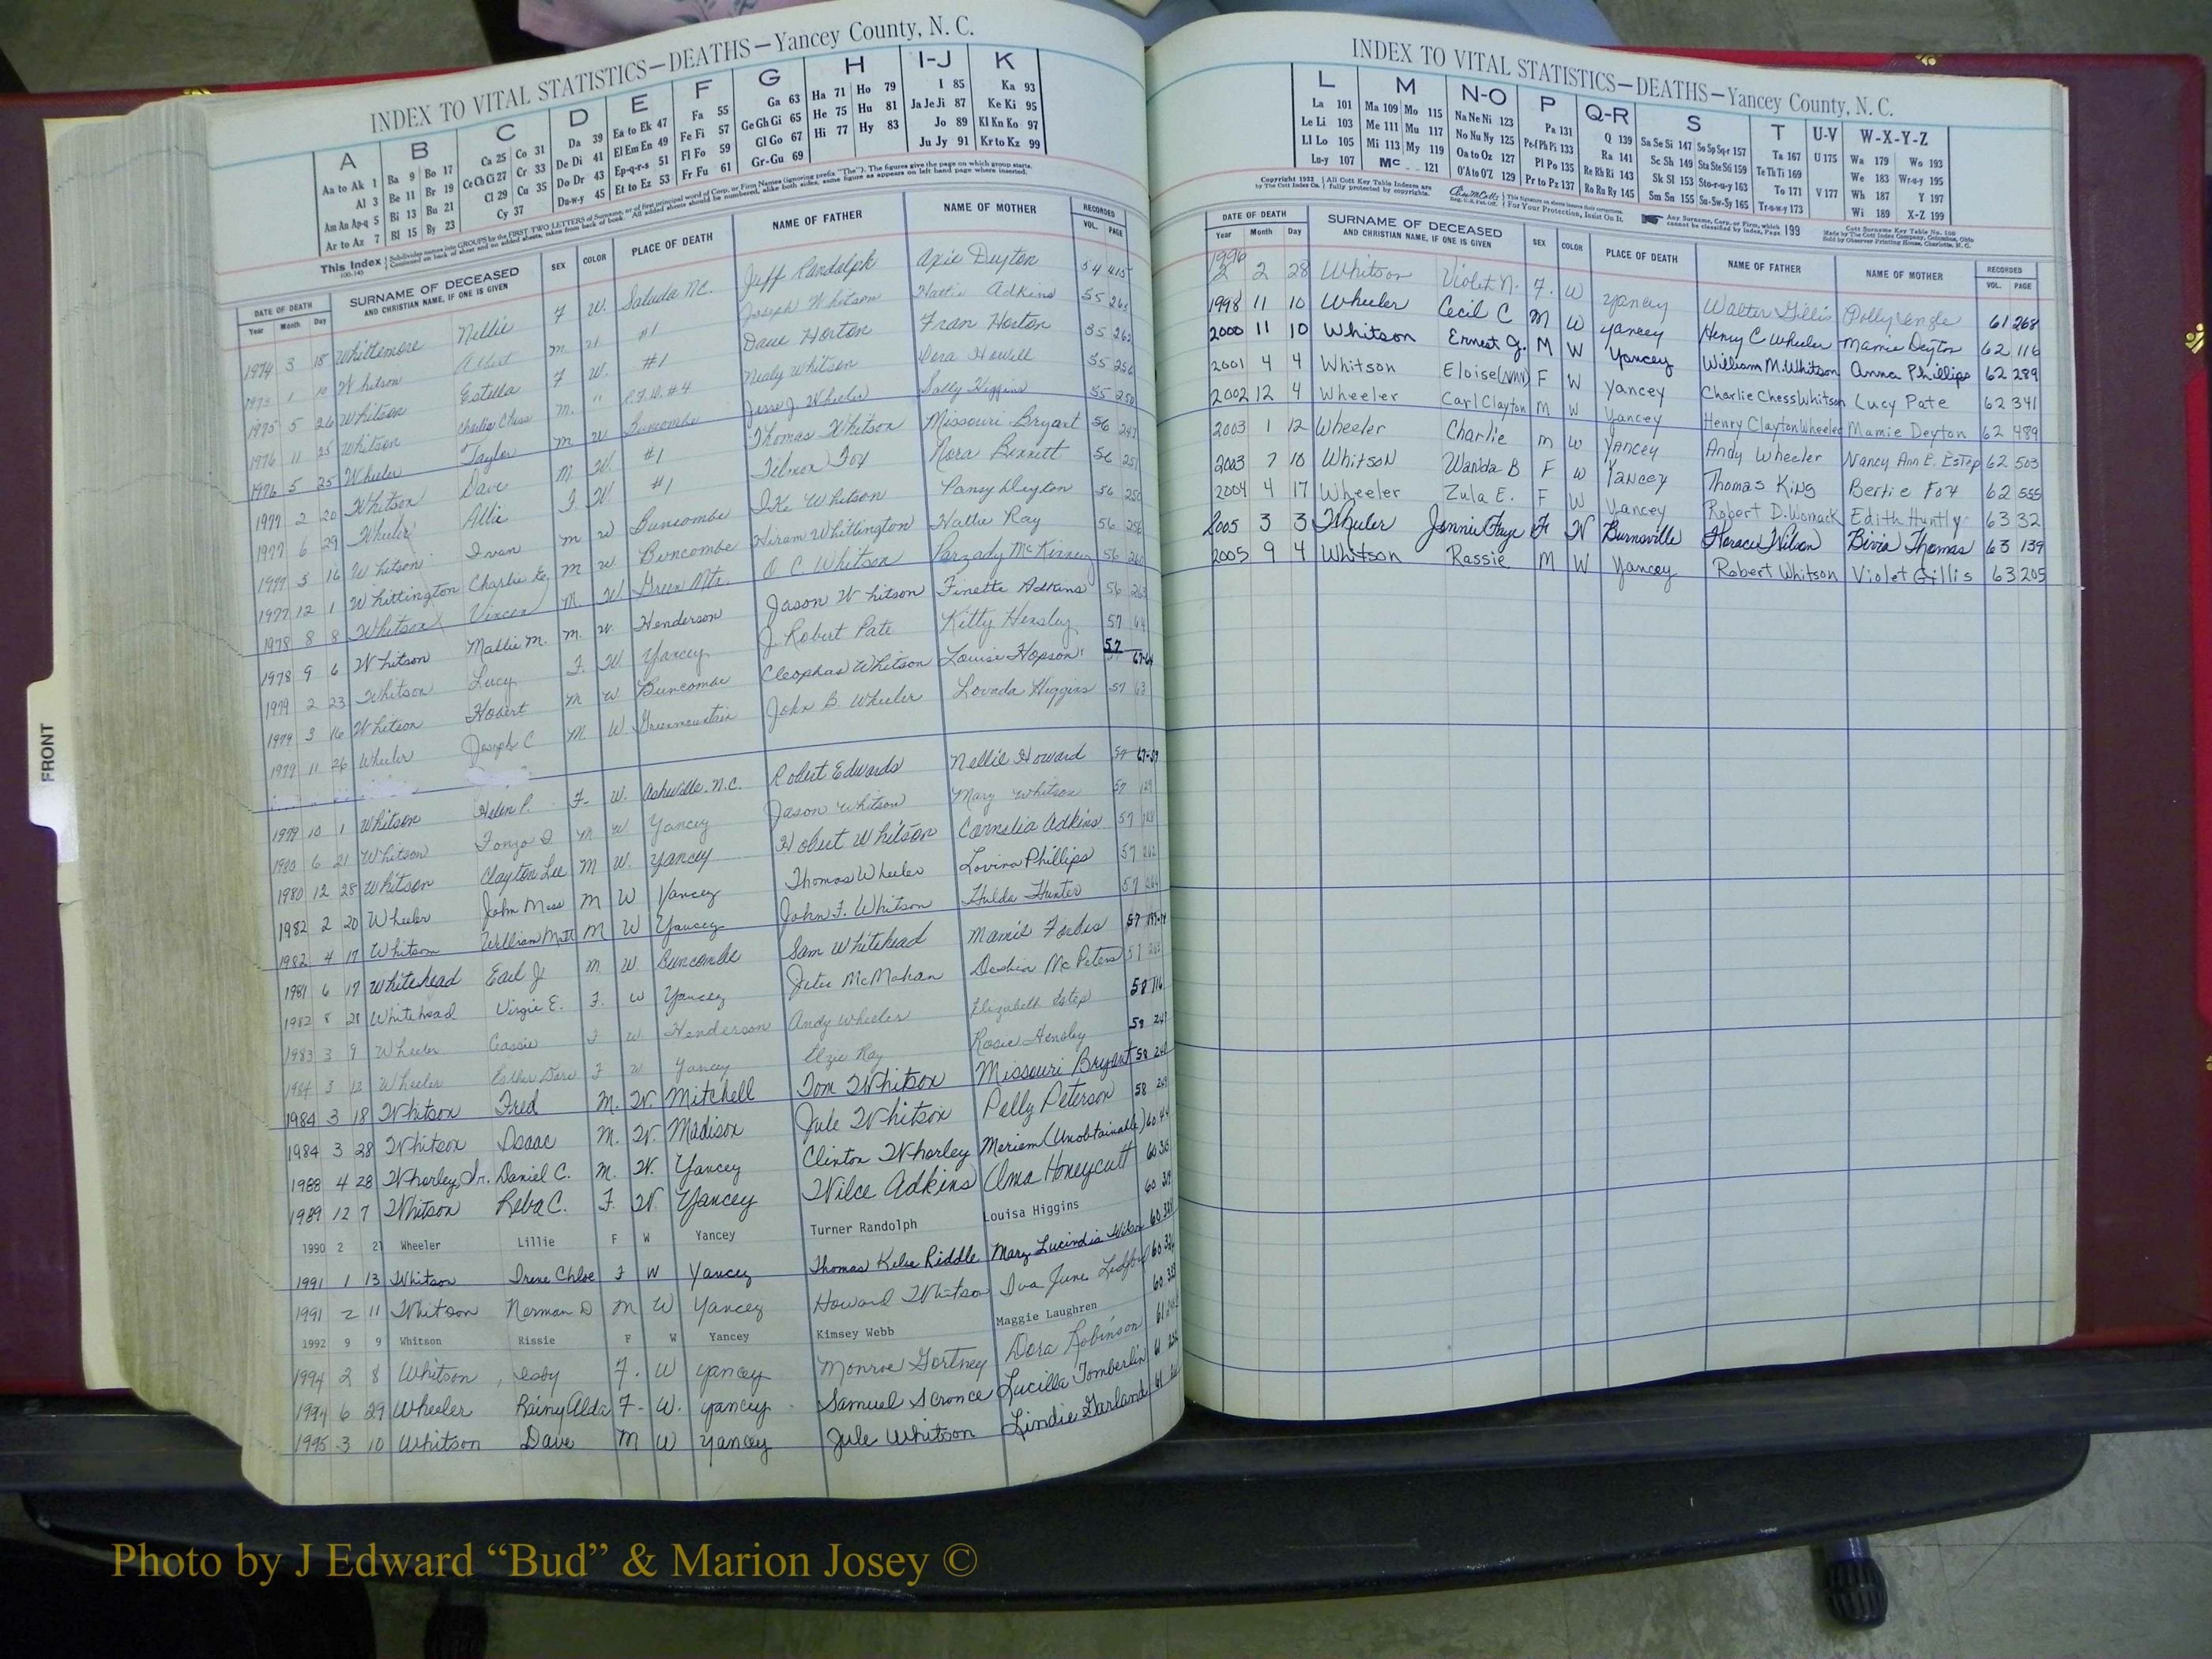 INDEX TO VITAL STATISTICS—DEATHS—Yancey County, N. C.
A B C D E F G H I-J K
Aa to Ak 1 Ba 9 Bo 17 Ca 25 Co 31 Da 39 Ea to Ek 47 Fa 55 Ga 63 Ha 71 Ho 79 I 85 Ka 93
Al 3 Be 11 Br 19 Ce Ch Ci 27 Cr 33 De Di 41 El Em En 49 Fe Fi 57 Ge Gh Gi 65 He 75 Hu 81 Ja Je Ji 87 Ke Ki 95
Am An Ap-q 5 Bi 13 Bu 21 Cl 29 Cu 35 Do Dr 43 Ep-q-r-s 51 Fl Fo 59 Gl Go 67 Hi 77 Hy 83 Jo 89 Kl Kn Ko 97
Ar to Az 7 Bl 15 By 23 Cy 37 Du-w-y 45 Et to Ez 53 Fr Fu 61 Gr-Gu 69 Ju Jy 91 Kr to Kz 99
This Index
DATE OF DEATH SURNAME OF DECEASED SEX COLOR PLACE OF DEATH NAME OF FATHER NAME OF MOTHER RECORDED
Year Month Day AND CHRISTIAN NAME, IF ONE IS GIVEN VOL. PAGE
1974 3 18 Whittemore Nellie F W. Saluda N.C. Jeff Randolph Axie Deyton 54 415
1975 1 10 Whitson Albert M. W #1 Joseph Whitson Hattie Adkins 55 263
1975 5 26 Whitson Estella F W. #1 Dave Horton Fran Horton 55 262
1976 11 25 Whitson Charlie Chess M. " R.F.D. #4 Nealy Whitson Dora Howell 55 256
1976 5 25 Wheeler Taylor M W Buncombe Jesse J. Wheeler Sally Higgins 55 258
1977 2 20 Whitson Dave M. W. #1 Thomas Whitson Missouri Bryant 56 247
1977 6 29 Wheeler Allie F. W #1 Tilmon Fox Nora Bennett 56 251
1977 5 16 Whitson Ivan M W Buncombe Ike Whitson Pansy Deyton 56 250
1977 12 1 Whittington Charlie M W. Buncombe Hiram Whittington Hattie Ray 56 256
1978 8 8 Whitson Vincen M. W Green Mtn. O. C. Whitson Parzady McKinney 56 260
1978 9 6 Whitson Mallie M. M. W. Henderson Jason Whitson Finettie Adkins 56 263
1979 2 23 Whitson Lucy F. W. Yancey J. Robert Pate Kitty Hensley 57 64
1979 3 16 Whitson Hobert M W Buncombe Cleophas Whitson Louise Hopson 57 67-64
1979 11 26 Wheeler Joseph C M. W Greenmountain John B. Wheeler Lovada Higgins 57 63
1979 10 1 Whitson Helen P. F. W. Asheville. N.C. Robert Edwards Nellie Howard 57 67-59
1980 6 21 Whitson Fonzo D M W Yancey Jason Whitson Mary Whitson 57 129
1980 12 28 Whitson Clayton Lee M W. Yancey Hobert Whitson Cornelia Adkins 57 128
1982 2 20 Wheeler John Moss M W Yancey Thomas Wheeler Lovina Phillips 57 262
1982 4 17 Whitson William Matt M W Yancey John F. Whitson Hulda Hunter 57 264
1981 6 17 Whitehead Earl Jr M. W. Buncombe Sam Whitehead Mamie Forbes 57
1982 8 28 Whitehead Virgie E. F. W Yancey Jeter McMahan McPeters 57 263
1983 3 9 Wheeler Cassie F W Henderson Andy Wheeler Elizabeth Estep 58 116
1984 3 12 Wheeler Esther Dare F W Yancey Elzie Ray Rosie Hensley 58 247
1984 3 18 Whitson Fred M. W. Mitchell Tom Whitson Missouri Bryant 58 248
1984 3 28 Whitson Isaac M. W. Madison Jule Whitson Polly Peterson 58 249
1988 4 28 Whorley, Sr. Daniel C. M. W. Yancey Clinton Whorley Meriem (Unobtainable) 60 44
1989 12 7 Whitson Reba C. F. W. Yancey Wilce Adkins Alma Honeycutt 60 305
1990 2 21 Wheeler Lillie F W Yancey Turner Randolph Louisa Higgins 60 319
1991 1 13 Whitson Irene Chloe F W Yancey Thomas Kelse Riddle Mary Lucindia Wilson 60
1991 2 11 Whitson Norman D M W Yancey Howard Whitson Iva June Ledford 60
1992 9 9 Whitson Rissie F W Yancey Kimsey Webb Maggie Laughren 60
1994 2 8 Whitson, Esby F. W Yancey Monroe Gortney Dora Robinson 61
1994 6 29 Wheeler Rainy Alda F- W. Yancey Samuel Scronce Lucilla Tomberlin 61
1995 3 10 Whitson Dave M W Yancey Jule Whitson Lindie Garland 61
FRONT
INDEX TO VITAL STATISTICS—DEATHS—Yancey County, N. C.
L M N-O P Q-R S T U-V W-X-Y-Z
La 101 Ma 109 Mo 115 Na Ne Ni 123 Pa 131 Q 139 Sa Se Si 147 So Sp Sq-r 157 Ta 167 U 175 Wa 179 Wo 193
Le Li 103 Me 111 Mu 117 No Nu Ny 125 Pe-f Ph Pi 133 Ra 141 Sc Sh 149 Sta Ste Sti 159 Te Th Ti 169 We 183 Wr-u-y 195
Ll Lo 105 Mi 113 My 119 Oa to Oz 127 Pl Po 135 Re Rh Ri 143 Sk Sl 153 Sto-r-u-y 163 To 171 V 177 Wh 187 Y 197
Lu-y 107 Mc 121 O'A to O'Z 129 Pr to Pz 137 Ro Ru Ry 145 Sm Sn 155 Su-Sw-Sy 165 Tr-u-w-y 173 Wi 189 X-Z 199
DATE OF DEATH SURNAME OF DECEASED SEX COLOR PLACE OF DEATH NAME OF FATHER NAME OF MOTHER RECORDED
Year Month Day AND CHRISTIAN NAME, IF ONE IS GIVEN VOL. PAGE
1996
2 2 28 Whitson Violet N. F. W Yancey Walter Gillis Polly Engle 61 268
1998 11 10 Wheeler Cecil C M W Yancey Henry C Wheeler Mamie Deyton 62 116
2000 11 10 Whitson Ernest J. M W Yancey William M. Whitson Anna Phillips 62 289
2001 4 4 Whitson Eloise (NMN) F W Yancey Charlie Chess Whitson Lucy Pate 62 341
2002 12 4 Wheeler Carl Clayton M W Yancey Henry Clayton Wheeler Mamie Deyton 62 489
2003 1 12 Wheeler Charlie M W Yancey Andy Wheeler Nancy Ann E. Estep 62 503
2003 7 10 Whitson Wanda B F W Yancey Thomas King Bertie Fox 62 555
2004 4 17 Wheeler Zula E. F W Yancey Robert D. Womack Edith Huntly 63 32
2005 3 3 Wheeler Jennie Faye F W Burnsville Horace Wilson Bivia Thomas 63 139
2005 9 4 Whitson Rassie M W Yancey Robert Whitson Violet Gillis 63 205
Photo by J Edward “Bud” & Marion Josey ©